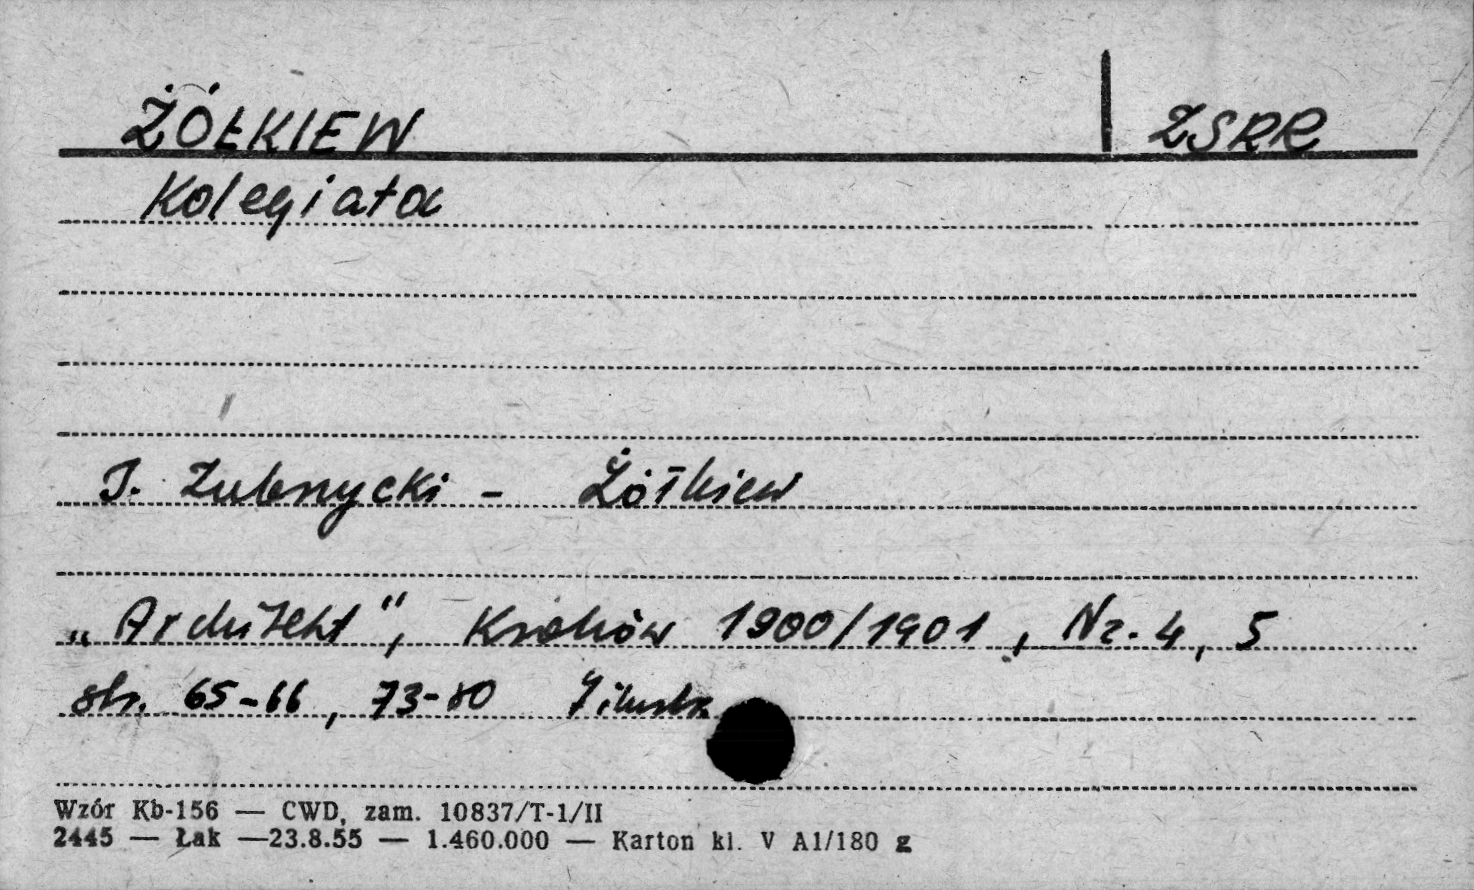 ŻÓŁKIEW ZSRR
Kolegiata
J. Zubrzycki - Żółkiew
„Architekt", Kraków 1900/1901, Nr. 4, 5
str. 65-66, 73-80 7 ilustr.
Wzór Kb-156 — CWD, zam. 10837/T-1/II
2445 — Łak —23.8.55 — 1.460.000 — Karton kl. V A1/180 g